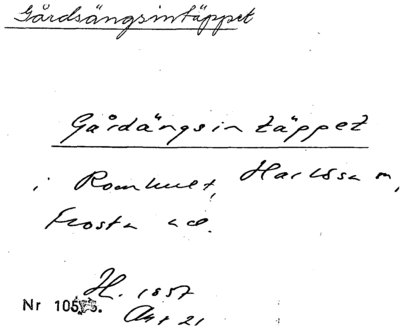 Gårdsängsintäppet
Gårdängsintäppet
i Romhult, Harlösa sn,
Frosta hd.
H. 1857
Akt 21
Nr 105